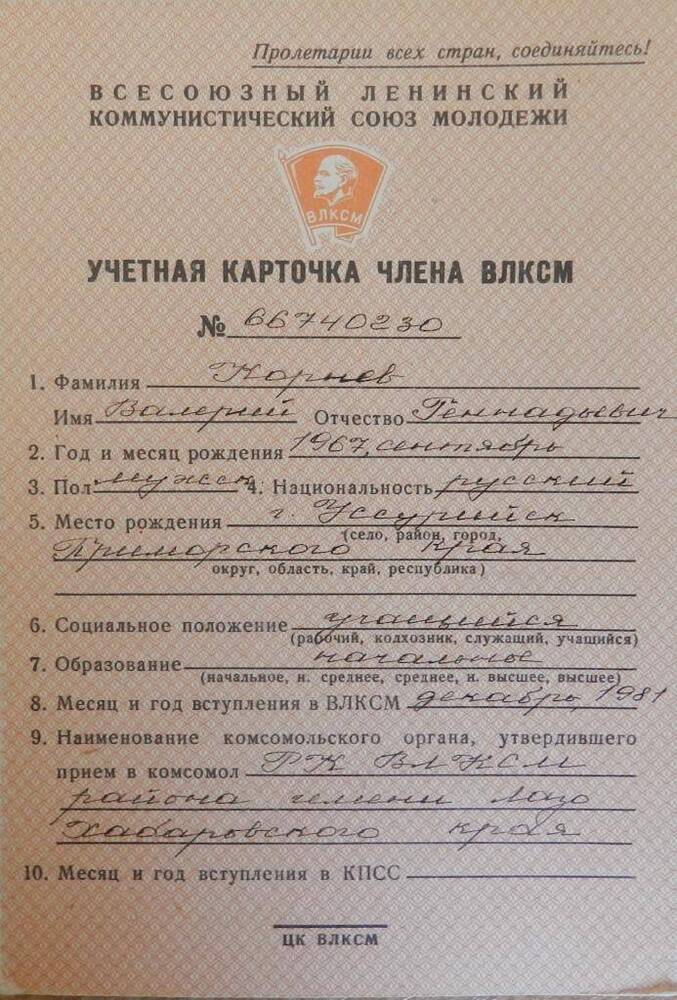 Пролетарии всех стран, соединяйтесь!
ВСЕСОЮЗНЫЙ ЛЕНИНСКИЙ
КОММУНИСТИЧЕСКИЙ СОЮЗ МОЛОДЕЖИ
ВЛКСМ
УЧЕТНАЯ КАРТОЧКА ЧЛЕНА ВЛКСМ
№ 66740230
1. Фамилия Корнев
Имя Валерий Отчество Геннадьевич
2. Год и месяц рождения 1967, сентябрь
3. Пол мужск 4. Национальность русский
5. Место рождения г. Уссурийск
(село, район, город,
Приморского края
округ, область, край, республика)
6. Социальное положение учащийся
(рабочий, колхозник, служащий, учащийся)
7. Образование начальное
(начальное, н. среднее, среднее, н. высшее, высшее)
8. Месяц и год вступления в ВЛКСМ декабрь, 1981
9. Наименование комсомольского органа, утвердившего
прием в комсомол РК ВЛКСМ
района имени Лазо
Хабаровского края
10. Месяц и год вступления в КПСС
ЦК ВЛКСМ